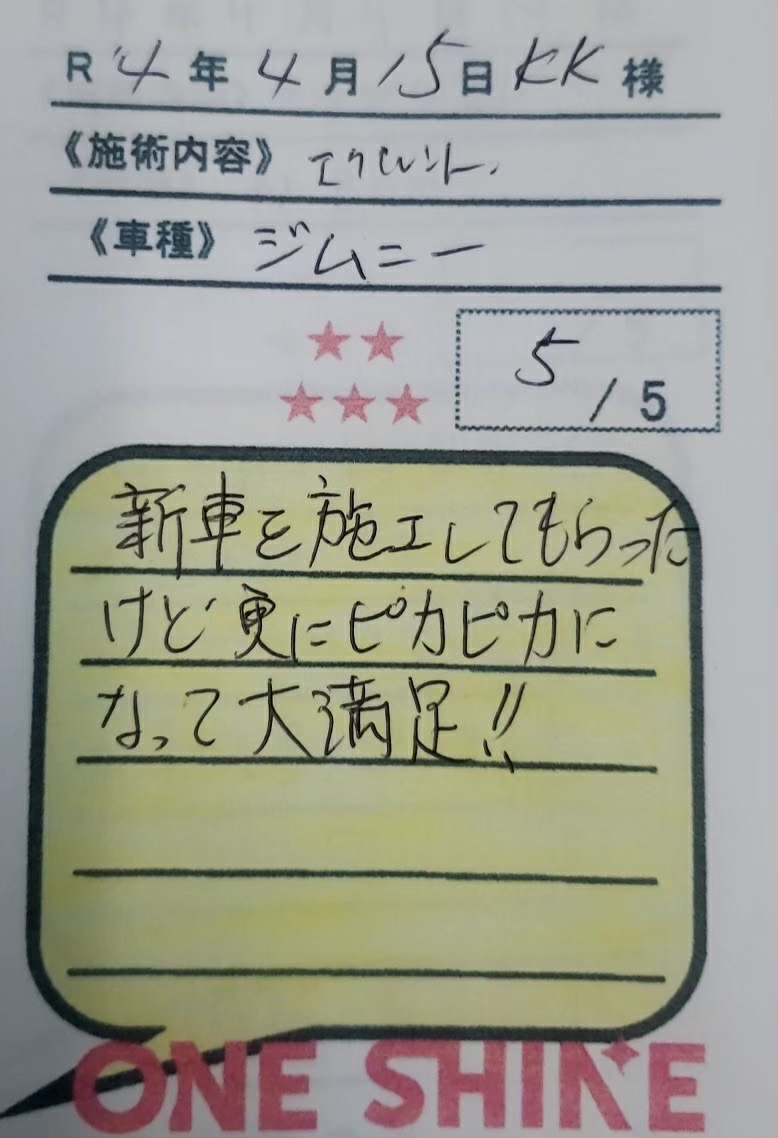 R4年4月15日 KK 様
《施術内容》 エクセレント.
《車種》 ジムニー
5 / 5
新車を施工してもらった
けど更にピカピカに
なって大満足!!
ONE SHINE